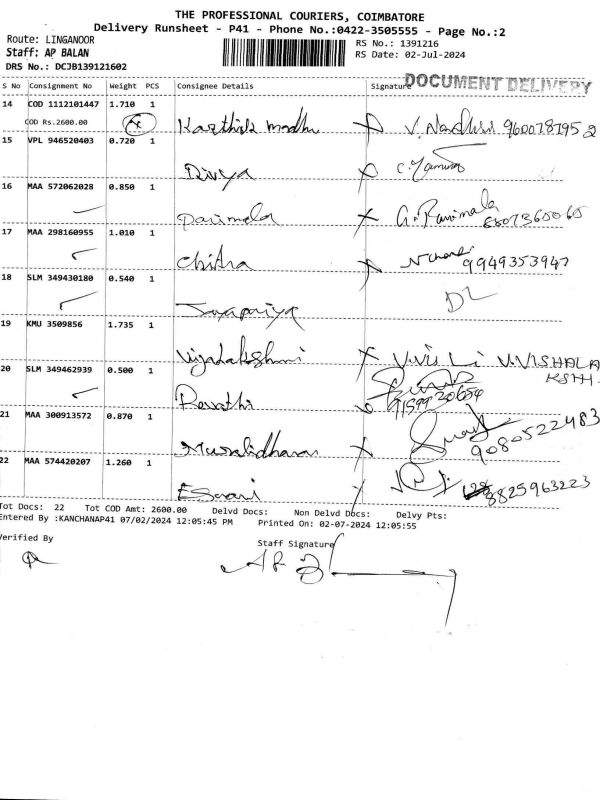 THE PROFESSIONAL COURIERS, COIMBATORE
Delivery Runsheet - P41 - Phone No.:0422-3505555 - Page No.:2
Route: LINGANOOR
RS No.: 1391216
Staff: AP BALAN
RS Date: 02-Jul-2024
DRS No.: DCJB139121602
S No Consignment No Weight PCS Consignee Details Signature
DOCUMENT DELIVERY
14 COD 1112101447 1.710 1
COD Rs.2600.00 Karthik madhu
15 VPL 946520403 0.720 1
Divya
16 MAA 572062028 0.850 1
Parimela G. Parimala
17 MAA 298160955 1.010 1
Chitra 9949353947
18 SLM 349430180 0.540 1
Jayapriya DL
19 KMU 3509856 1.735 1
Vijalakshmi V.VISHALA
20 SLM 349462939 0.500 1
Revathi
21 MAA 300913572 0.870 1
Muralidharan 9080522483
22 MAA 574420207 1.260 1
Eswari 8825963223
Tot Docs: 22 Tot COD Amt: 2600.00 Delvd Docs: Non Delvd Docs: Delvy Pts:
Entered By :KANCHANAP41 07/02/2024 12:05:45 PM Printed On: 02-07-2024 12:05:55
Verified By Staff Signature